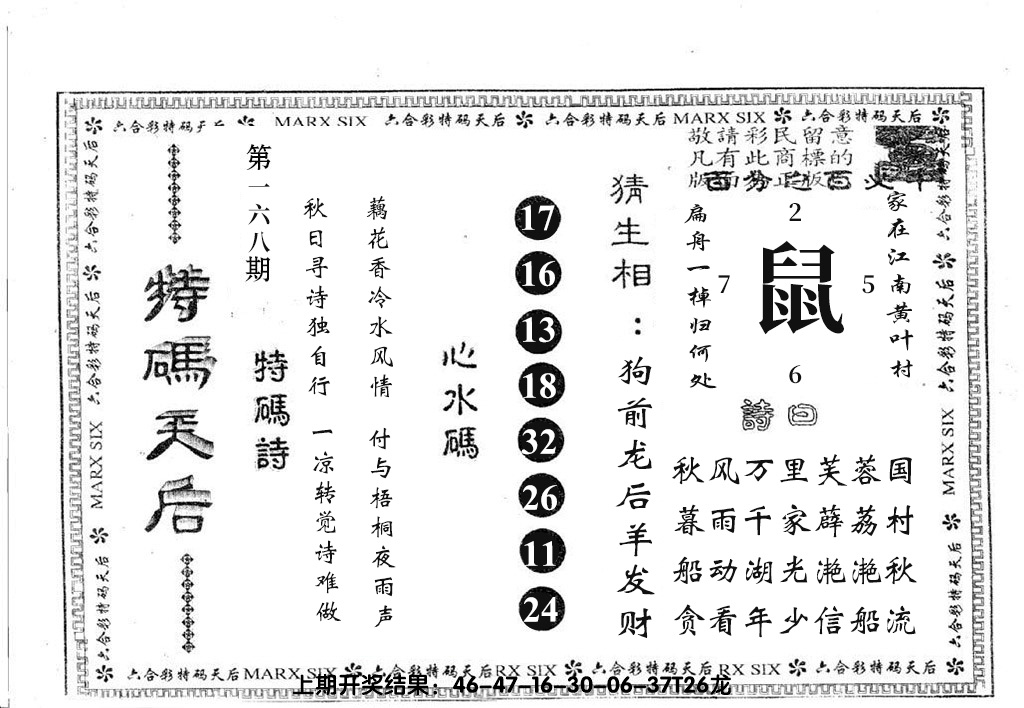 六合彩特码天后 MARX SIX 六合彩特码天后 六合彩特码天后 MARX SIX 六合彩特码天后
特碼天后
第一六八期
特碼詩
秋日寻诗独自行 一凉转觉诗难做
藕花香冷水风情 付与梧桐夜雨声
心水碼
17
16
13
18
32
26
11
24
猜生相：狗前龙后羊发财
敬請彩民留意
凡有此商標的
扁舟一棹归何处
家在江南黄叶村
2
7 鼠 5
6
詩曰
秋风万里芙蓉国
暮雨千家薜荔村
船动湖光滟滟秋
贪看年少信船流
六合彩特码天后 MARX SIX 六合彩特码天后
六合彩特码天后 MARX SIX 六合彩特码天后
六合彩特码天后 MARX SIX 六合彩特码天后RX SIX 六合彩特码天后 RX SIX 六合彩特码天后
上期开奖结果：46-47-16-30-06-37T26龙